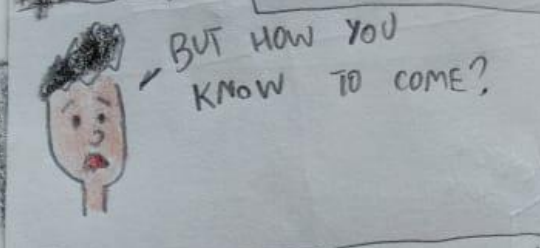 BUT HOW YOU
KNOW TO COME?